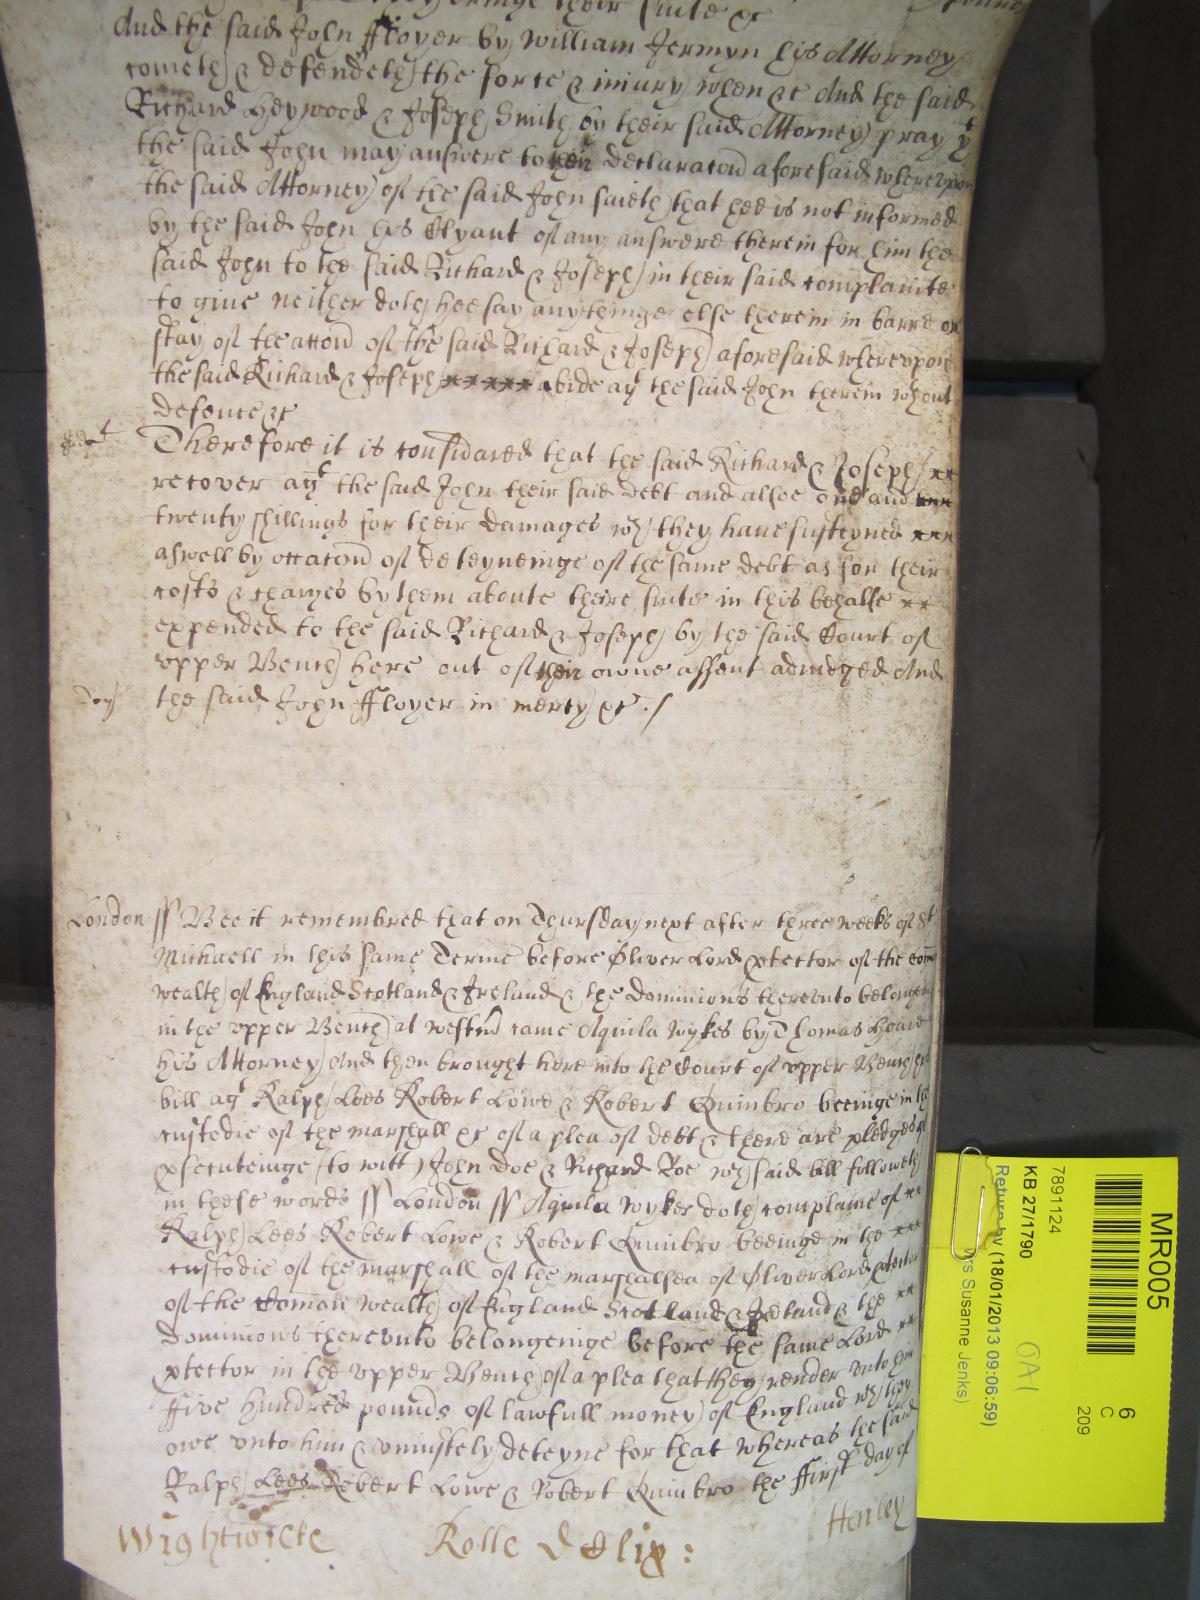 their suite &c
And the said John ffloyer by William Jermyn his Attorney
cometh & defendeth the force & iniury when &c And the said
Richard Heywood & Joseph Smith by their said Attorney pray yt
the said John may answere to their declaracon aforesaid wherevpon
the said Attorney of the said John saieth that hee is not informed
by the said John his Clyant of any answere therein for him the
said John to the said Richard & Joseph in their said complainte
to giue neither doth hee say anythinge else therein in barre or
stay of the accon of the said Richard & Joseph aforesaid wherevpon
the said Richard & Joseph abide agt the said John therein wthout
defence &c
Therefore it is considared that the said Richard & Joseph
recover agt the said John their said debt and alsoe one and
twenty shillings for their damages wch they haue susteyned
aswell by occacon of deteyneinge of the same debt as for their
costs & charges by them aboute theire suite in this behalfe
expended to the said Richard & Joseph by the said Court of
vpper Bench here out of their owne assent adiudged And
the said John ffloyer in mercy &c ./
London ss Bee it remembred that on Thursday next after three weeks of St
Michaell in this same Terme before Oliver Lord ptector of the com
wealth of England Scotland & Ireland & the dominions therevnto belonginge
in the vpper Bench at westm came Aquila Wykes by Thomas Hoare
his Attorney And then brought here into the Court of vpper Bench his
bill agt Ralph Lees Robert Lowe & Robert Quinbro beeinge in the
custodie of the marshall &c of a plea of debt & there are pledges of
psecuteinge (to witt) John Doe & Richard Roe wch said bill followeth
in these words ss London ss Aquila Wykes doth complaine of
Ralph Lees Robert Lowe & Robert Quinbro beeinge in the
custodie of the marshall of the marshalsea of Oliver Lord ptector
of the Comon wealth of England Scotland & Ireland & the
dominions therevnto belongeinge before the same Lord
ptector in the vpper Bench of a plea that they render vnto him
ffive hundred pounds of lawfull money of England wch they
owe vnto him & vniustely deteyne for that whereas the said
Ralph Lees Robert Lowe & Robert Quinbro the ffirst day of
Wightwicke Rolle Henley
MR005
6
C
209
7891124
KB 27/1790
Return by (18/01/2013 09:06:59)
rs Susanne Jenks)